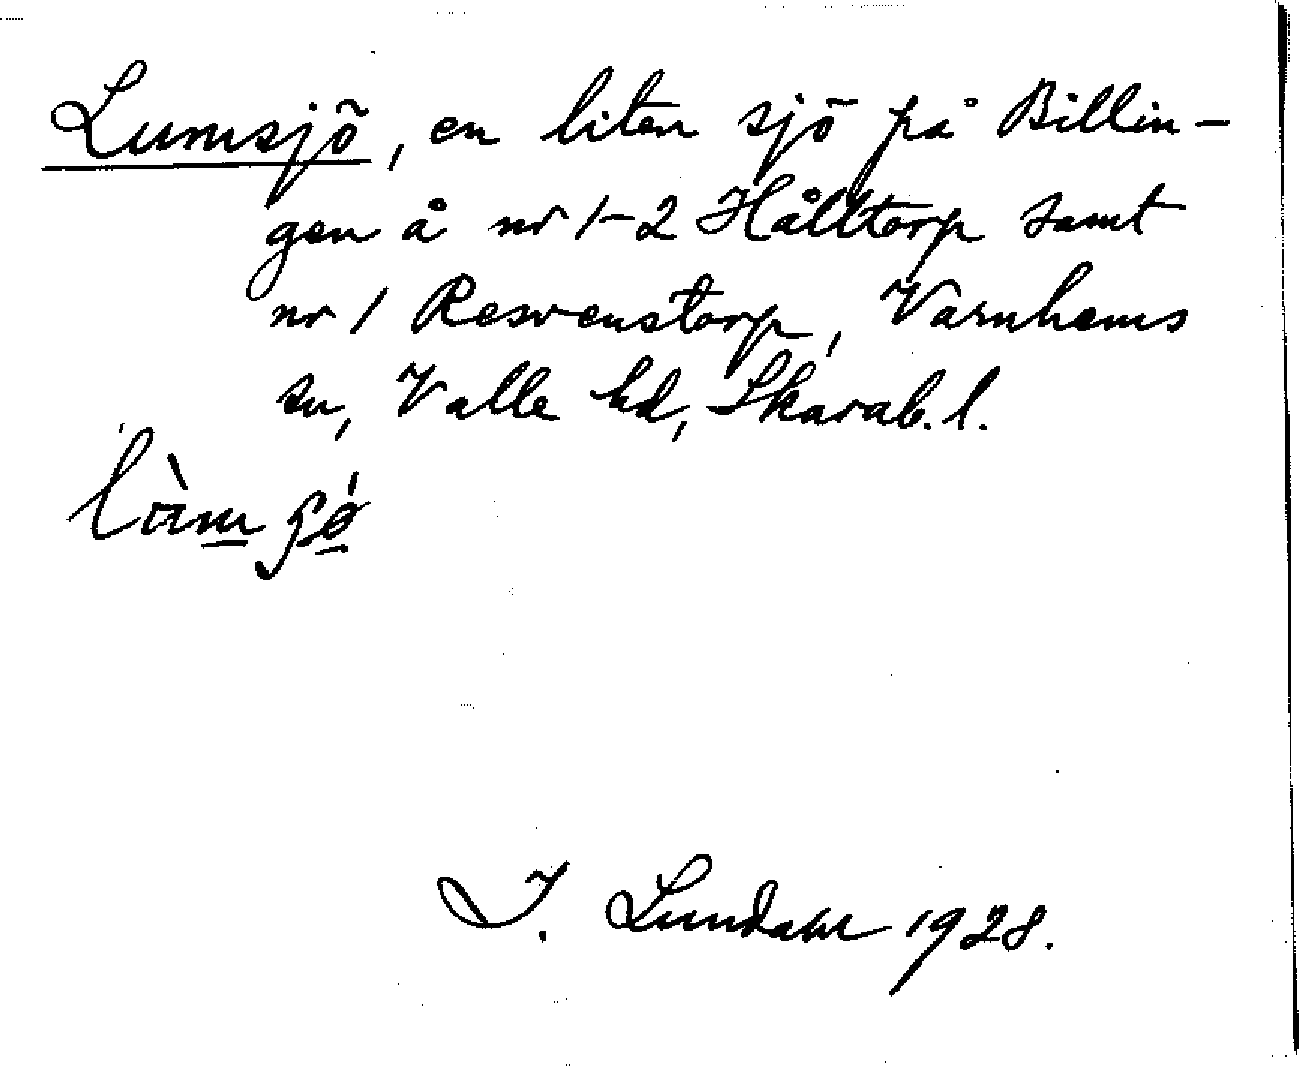 Lumsjö, en liten sjö på Billin-
gen å nr 1-2 Hålltorp samt
nr 1 Resvenstorp, Varnhems
sn, Valle hd, Skarab. l.
I. Lundahl 1928.